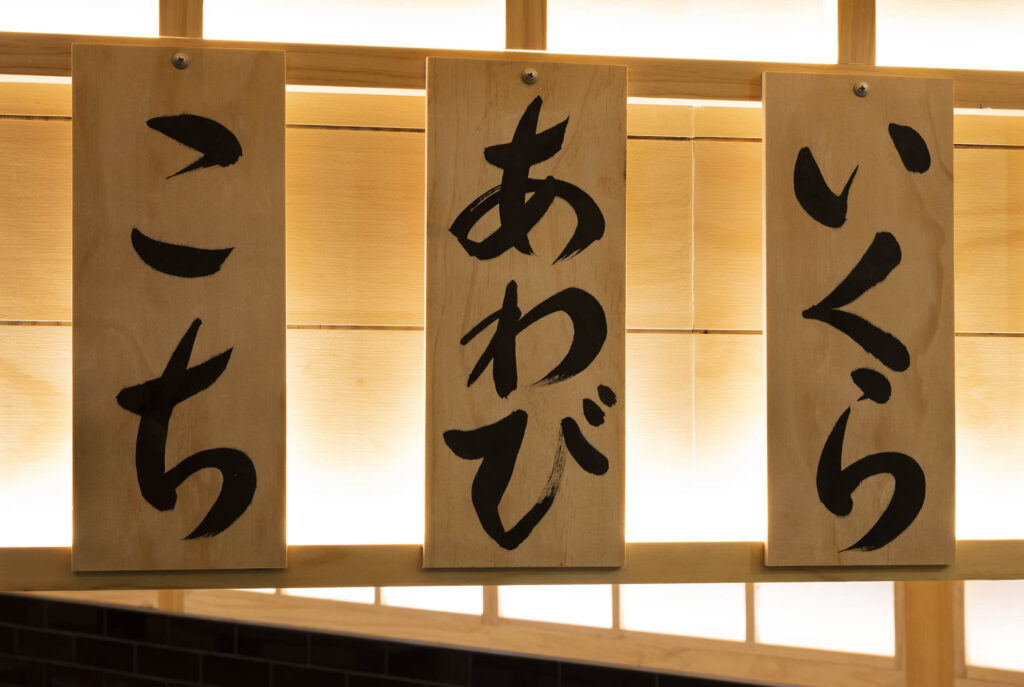 いくら
あわび
こち